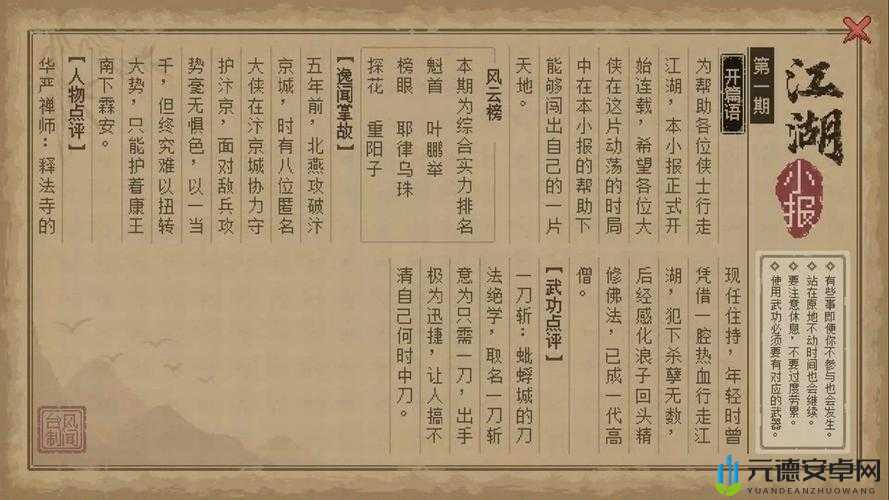 江湖
小报
第一期
有些事即便你不参与也会发生。
站在原地不动时间也会继续。
要注意休息，不要过度劳累。
使用武功必须要有对应的武器。
开篇语
为帮助各位侠士行走
江湖，本小报正式开
始连载，希望各位大
侠在这片动荡的时局
中在本小报的帮助下
能够闯出自己的一片
天地。
风云榜
本期为综合实力排名
魁首 叶鹏举
榜眼 耶律乌珠
探花 重阳子
【逸闻掌故】
五年前，北燕攻破汴
京城，时有八位匿名
大侠在汴京城协力守
护汴京，面对敌兵攻
势毫无惧色，以一当
千，但终究难以扭转
大势，只能护着康王
南下霖安。
【人物点评】
华严禅师：释法寺的
现任住持，年轻时曾
凭借一腔热血行走江
湖，犯下杀孽无数，
后经感化浪子回头精
修佛法，已成一代高
僧。
【武功点评】
一刀斩：蚍蜉城的刀
法绝学，取名一刀斩
意为只需一刀，出手
极为迅捷，让人搞不
清自己何时中刀。
风闻
台制
元德安卓网
YUANDEANZHUOWANG